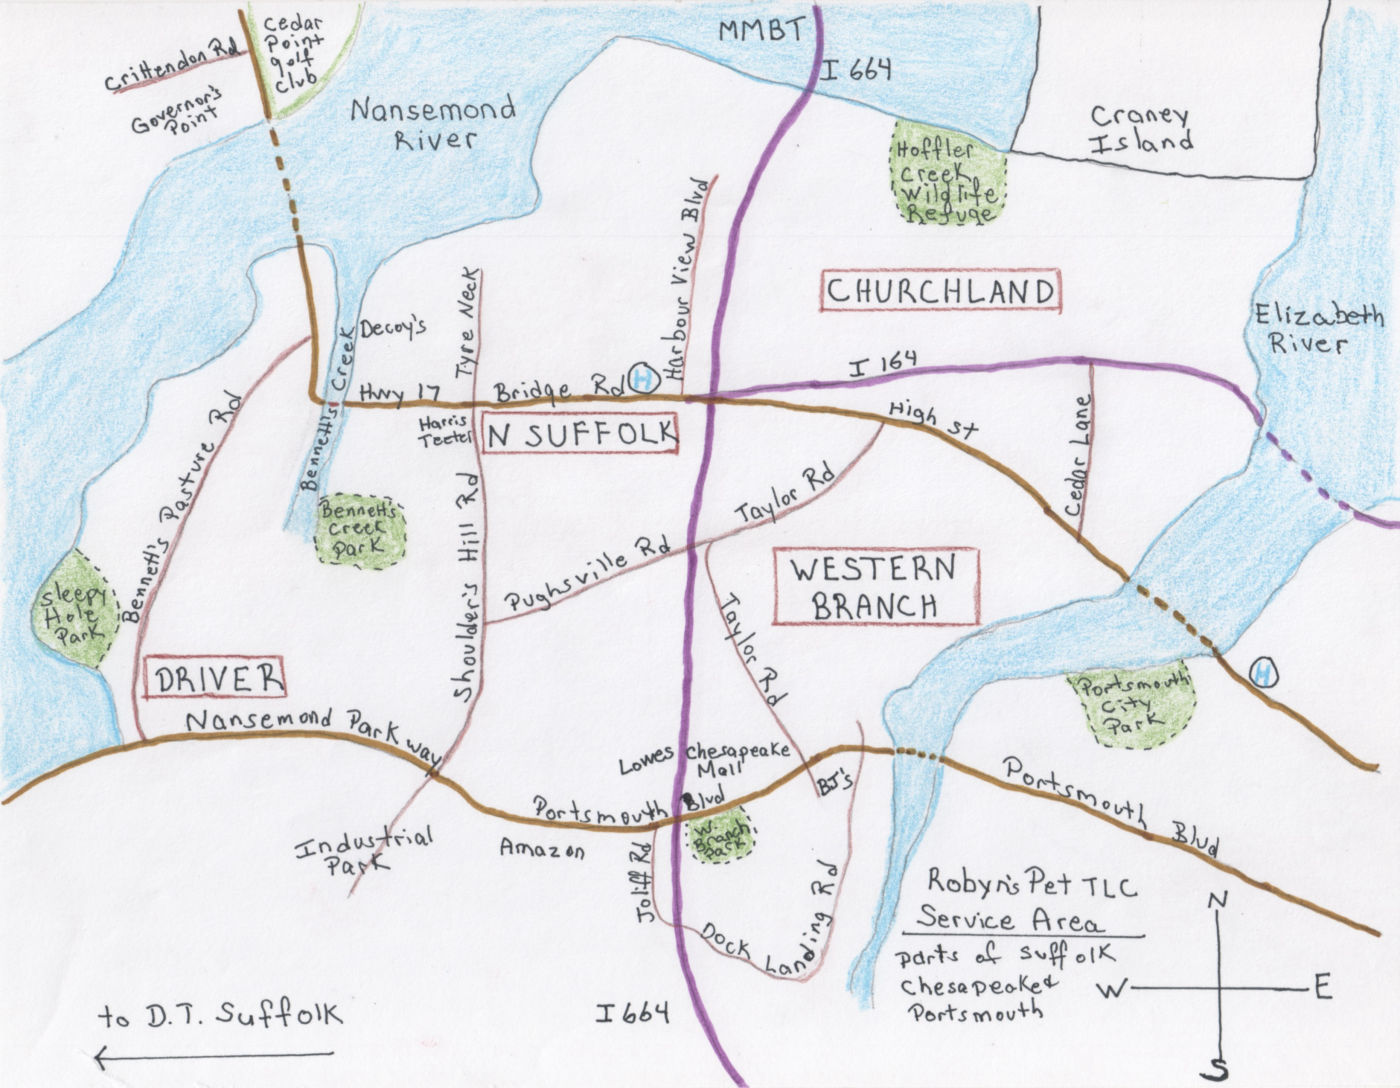 Cedar
Point
golf
club
Crittendon Rd
Governor's
Point
Nansemond
River
MMBT
I 664
Craney
Island
Hoffler
Creek
Wildlife
Refuge
Harbour View Blvd
CHURCHLAND
Elizabeth
River
Tyre Neck
Decoy's
Bennett's Creek
Hwy 17
Bridge Rd
H
I 164
High St
Harris
Teeter
N SUFFOLK
Cedar Lane
Bennett's Pasture Rd
Bennett's
Creek
Park
Shoulder's Hill Rd
Taylor Rd
Pughsville Rd
WESTERN
BRANCH
Sleepy
Hole
Park
Taylor Rd
DRIVER
H
Portsmouth
City
Park
Nansemond Parkway
Lowes
Chesapeake
Mall
BJ's
Portsmouth Blvd
Portsmouth Blvd
W.
Branch
Park
Industrial
Park
Amazon
Joliff Rd
Dock Landing Rd
Robyn's Pet TLC
Service Area
parts of Suffolk
Chesapeake &
Portsmouth
N
W
E
S
I 664
to D.T. Suffolk